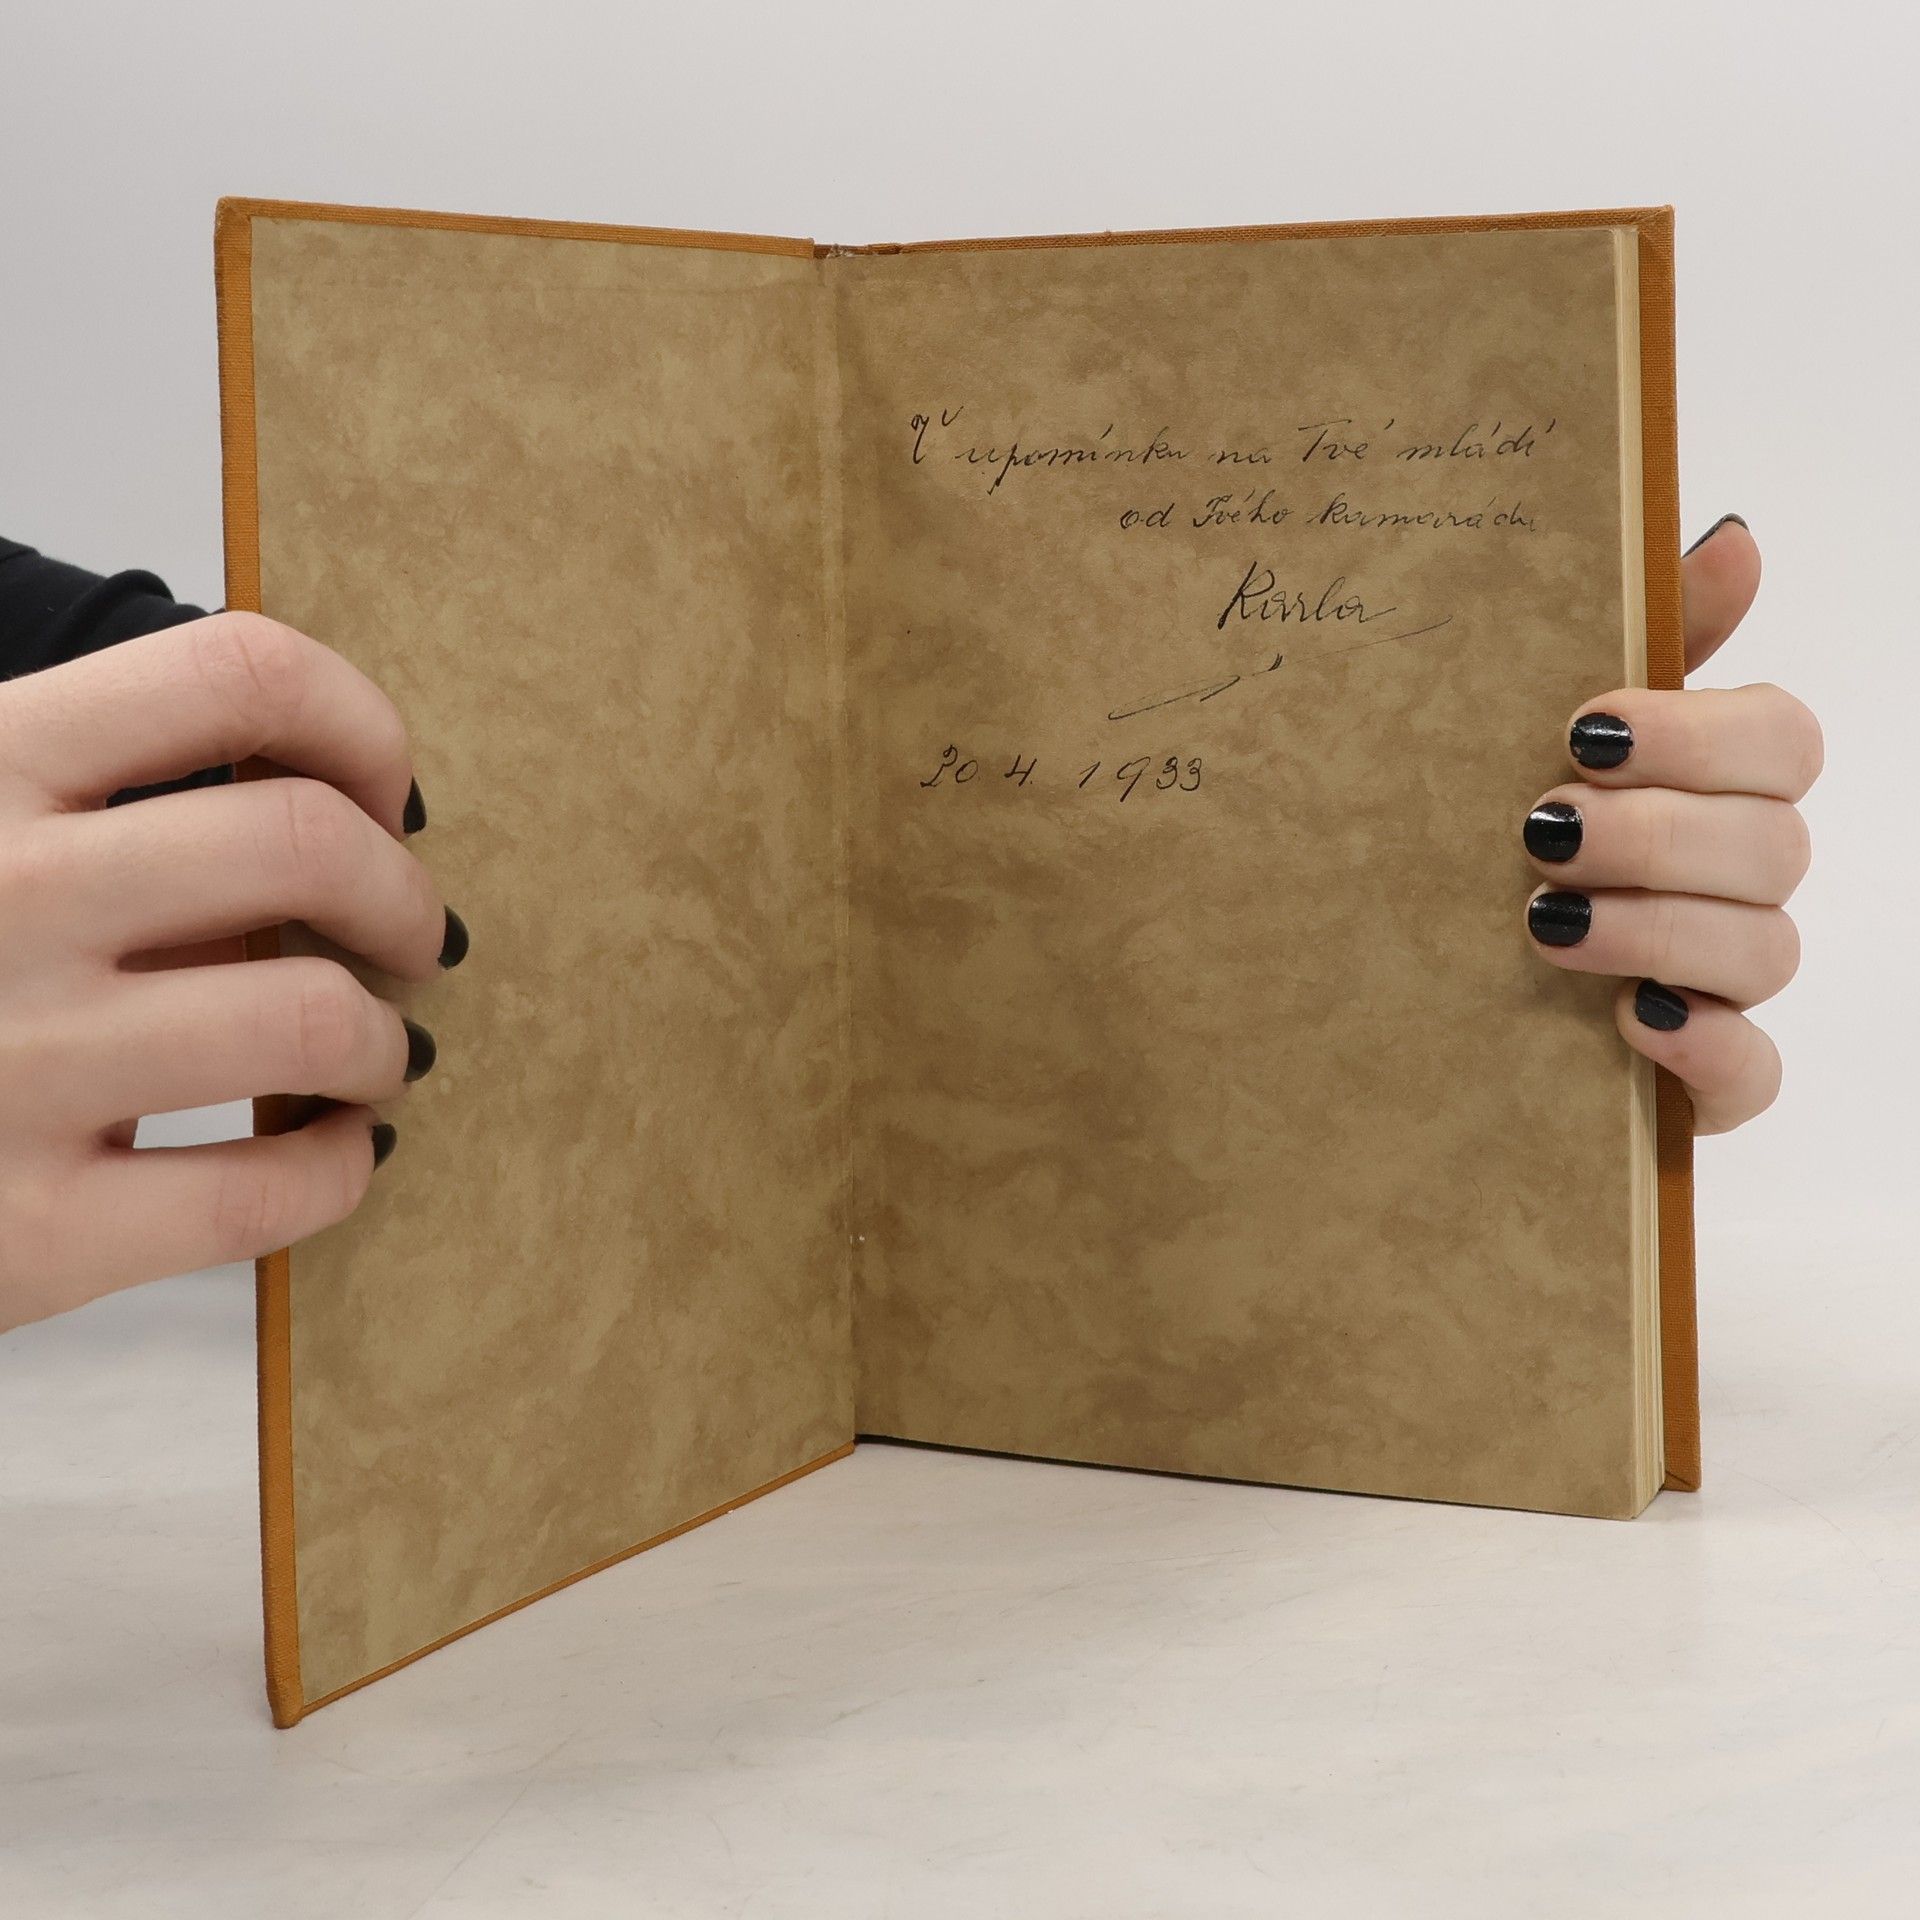 V upomínku na Tvé mládí
od Tvého kamaráda
Karla
20. 4. 1933